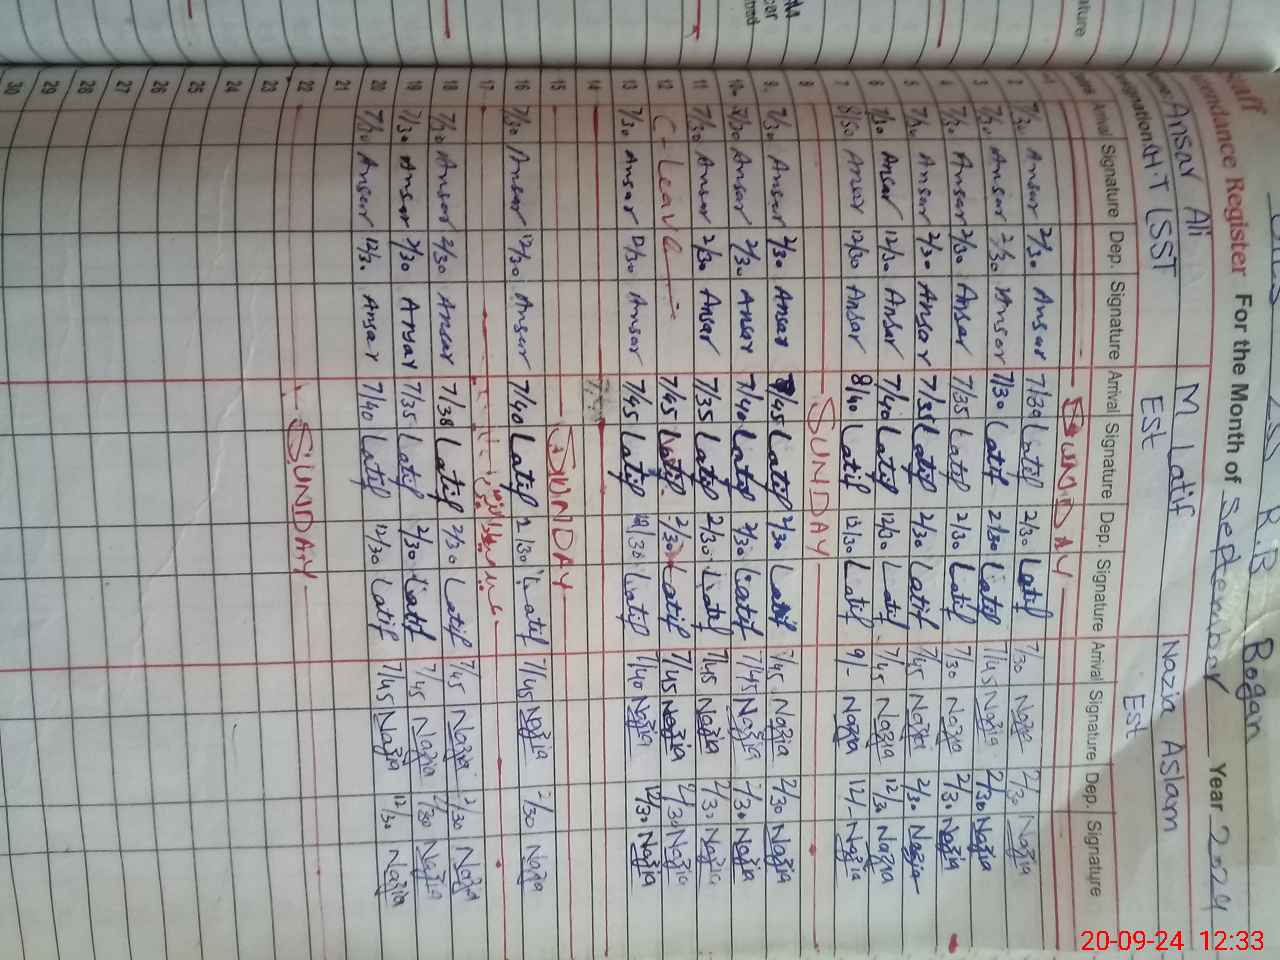 Staff
Attendance Register For the Month of September Year 2024
R.B Bogan
Name: Ansar Ali M Latif Nazia Aslam
Designation H.T (SST Est Est
Date Arrival Signature Dep. Signature Arrival Signature Dep. Signature Arrival Signature Dep. Signature
1 SUNDAY
2 7/30 Ansar 2/30 Ansar 7/30 Latif 2/30 Latif 7/30 Nazia 2/30 Nazia
3 7/30 Ansar 2/30 Ansar 7/30 Latif 2/30 Latif 7/45 Nazia 2/30 Nazia
4 7/30 Ansar 2/30 Ansar 7/35 Latif 2/30 Latif 7/30 Nazia 2/30 Nazia
5 7/30 Ansar 2/30 Ansar 7/35 Latif 2/30 Latif 7/45 Nazia 2/30 Nazia
6 7/30 Ansar 12/30 Ansar 7/40 Latif 12/30 Latif 7/45 Nazia 12/30 Nazia
7 8/30 Ansar 12/30 Ansar 8/40 Latif Latif 9/- Nazia 12/- Nazia
8 SUNDAY
9 7/30 Ansar 2/30 Ansar 7/45 Latif 2/30 Latif 7/45 Nazia 2/30 Nazia
10 7/30 Ansar 2/30 Ansar 7/40 Latif 2/30 Latif 7/45 Nazia 2/30 Nazia
11 7/30 Ansar 2/30 Ansar 7/35 Latif 2/30 Latif 7/45 Nazia 2/30 Nazia
12 C-Leave 7/45 Latif 2/30 Latif 7/45 Nazia 2/30 Nazia
13 7/30 Ansar 12/30 Ansar 7/45 Latif Latif 7/40 Nazia 12/30 Nazia
14
15 SUNDAY
16 7/30 Ansar 12/30 Ansar 7/40 Latif 2/30 Latif 7/45 Nazia 2/30 Nazia
17
18 7/30 Ansar 2/30 Ansar 7/38 Latif 2/30 Latif 7/45 Nazia 2/30 Nazia
19 7/30 Ansar 2/30 Ansar 7/35 Latif 2/30 Latif 7/45 Nazia 2/30 Nazia
20 7/30 Ansar 12/30 Ansar 7/40 Latif 12/30 Latif 7/45 Nazia 12/30 Nazia
21
22 SUNDAY
23
24
25
26
27
28
29
30
20-09-24 12:33